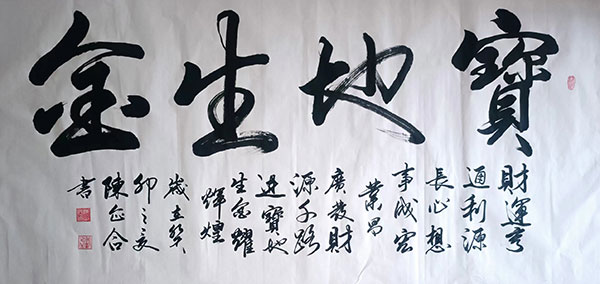 寶地生金
財運亨
通利源
長心想
事成宏
業昌
廣發財
源千路
進寶地
生金耀
輝煌
歲在癸
卯之夏
陳合
書